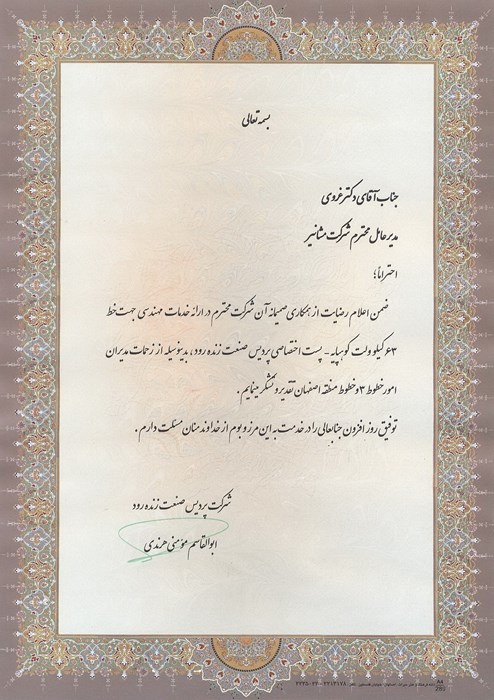 بسمه تعالی
جناب آقای دکتر غروی
مدیرعامل محترم شرکت مشانیر
احتراماً؛
ضمن اعلام رضایت از همکاری صمیمانه آن شرکت محترم در ارائه خدمات مهندسی جهت خط
۶۳ کیلو ولت کوهپایه - پست اختصاصی پردیس صنعت زنده رود، بدینوسیله از زحمات مدیران
امور خطوط ۳ و خطوط منطقه اصفهان تقدیر و تشکر مینمایم.
توفیق روز افزون جنابعالی را در خدمت به این مرز و بوم از خداوند منان مسئلت دارم.
شرکت پردیس صنعت زنده رود
ابوالقاسم مؤمنی هرندی
A4